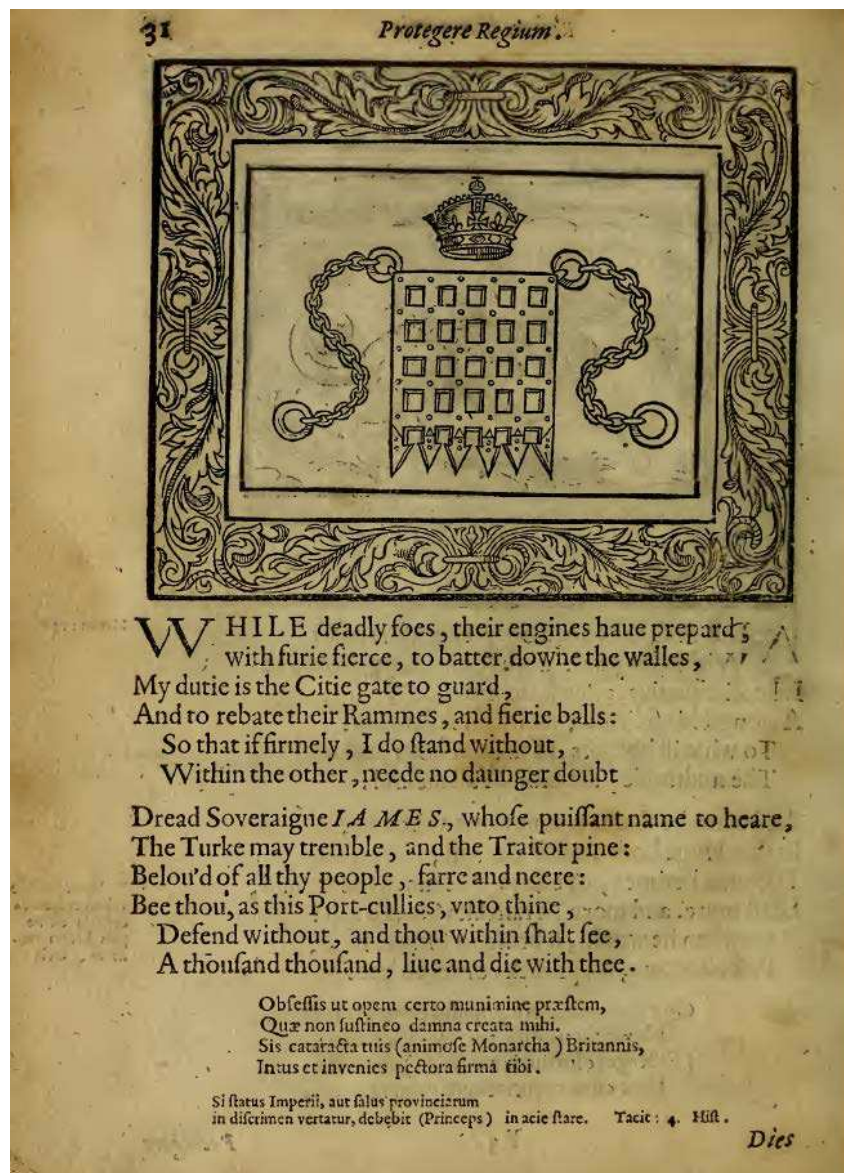 31 Protegere Regium.
WHILE deadly foes, their engines haue prepard;
with furie fierce, to batter downe the walles,
My dutie is the Citie gate to guard,
And to rebate their Rammes, and fierie balls:
So that if firmely, I do ſtand without,
Within the other, neede no daunger doubt
Dread Soveraigne IAMES, whoſe puiſſant name to heare,
The Turke may tremble, and the Traitor pine:
Belou'd of all thy people, farre and neere:
Bee thou, as this Port-cullies, vnto thine,
Defend without, and thou within ſhalt ſee,
A thouſand thouſand, liue and die with thee.
Obſeſſis ut opem certo munimine præſtem,
Quæ non ſuſtineo damna creata mihi.
Sis cataracta tuis (animoſe Monarcha) Britannis,
Intus et invenies pectora firma tibi.
Si ſtatus Imperii, aut ſalus provinciarum
in diſcrimen vertatur, debebit (Princeps) in acie ſtare. Tacit: 4. Hiſt.
Dies